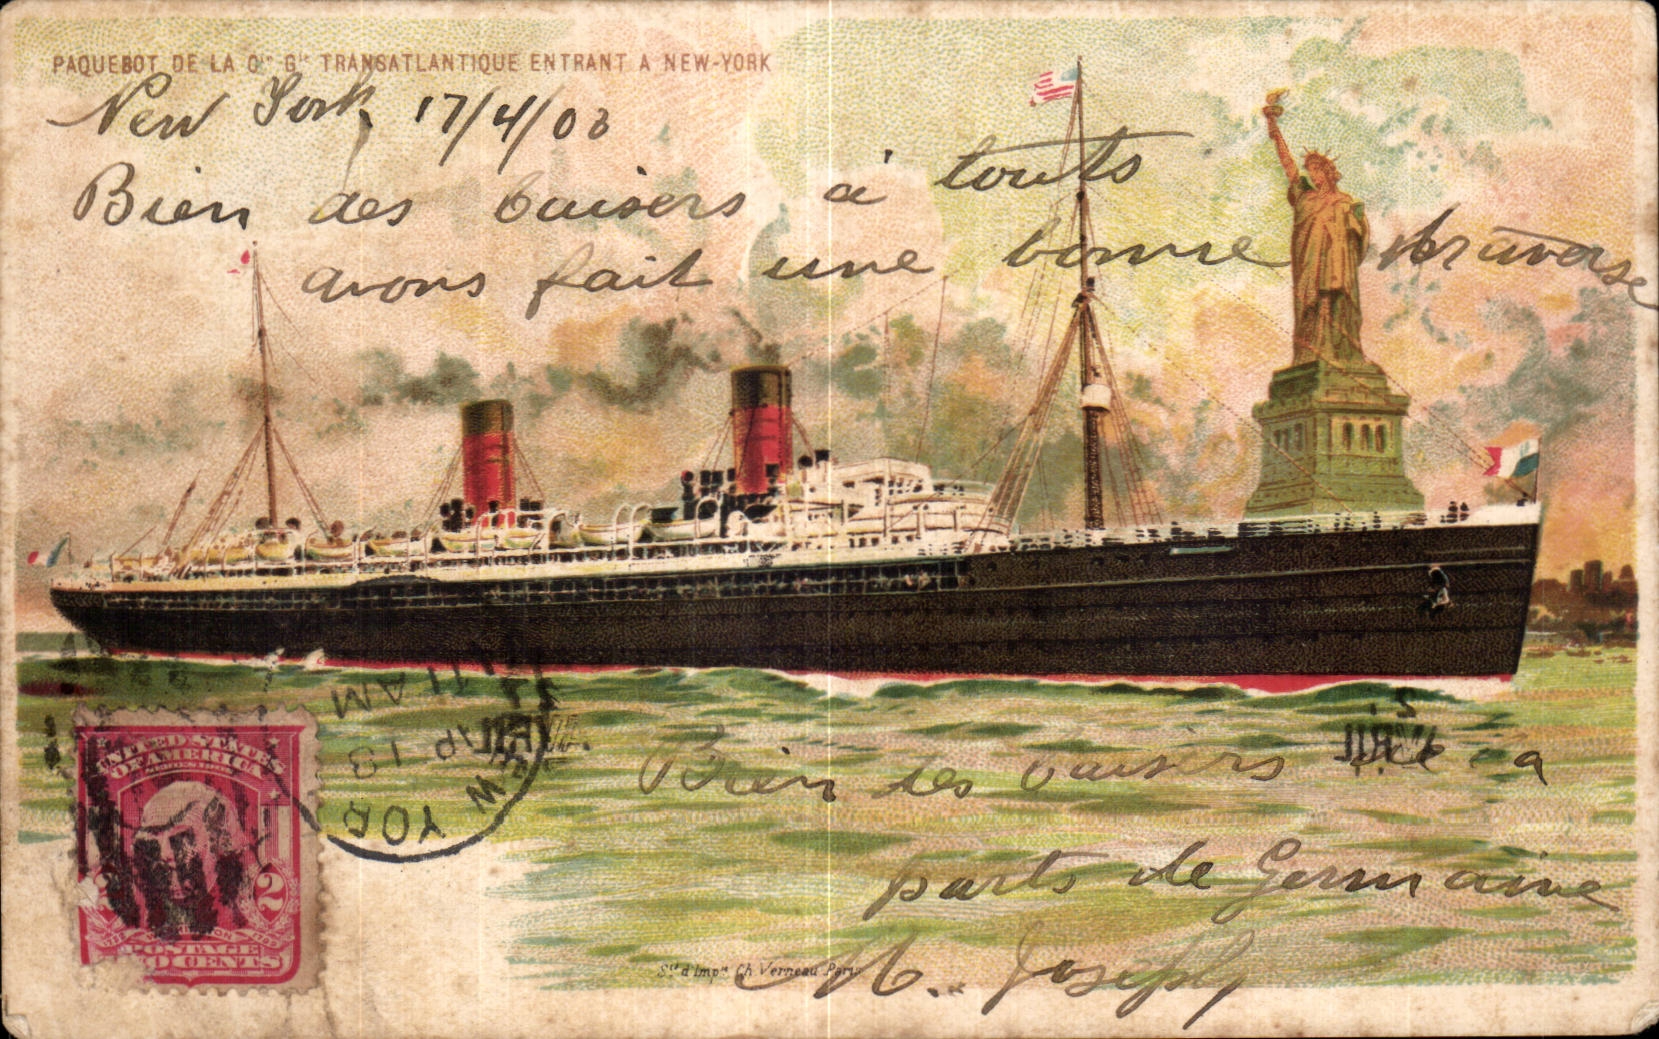 PAQUEBOT DE LA Cie Gle TRANSATLANTIQUE ENTRANT A NEW-YORK
New York 17/4/03
Bien des baisers a touts
avons fait une bonne traverse
Bien des baisers de la
parts de Germaine
Joseph
Sté d'Impon Ch. Verneau Paris
UNITED STATES
OF AMERICA
2 2
POSTAGE
TWO CENTS
W YOR
13
11 AM